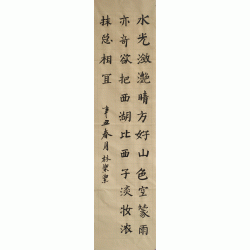 水光潋滟晴方好山色空蒙雨
亦奇欲把西湖比西子淡妆浓
抹總相宜
辛丑春月林